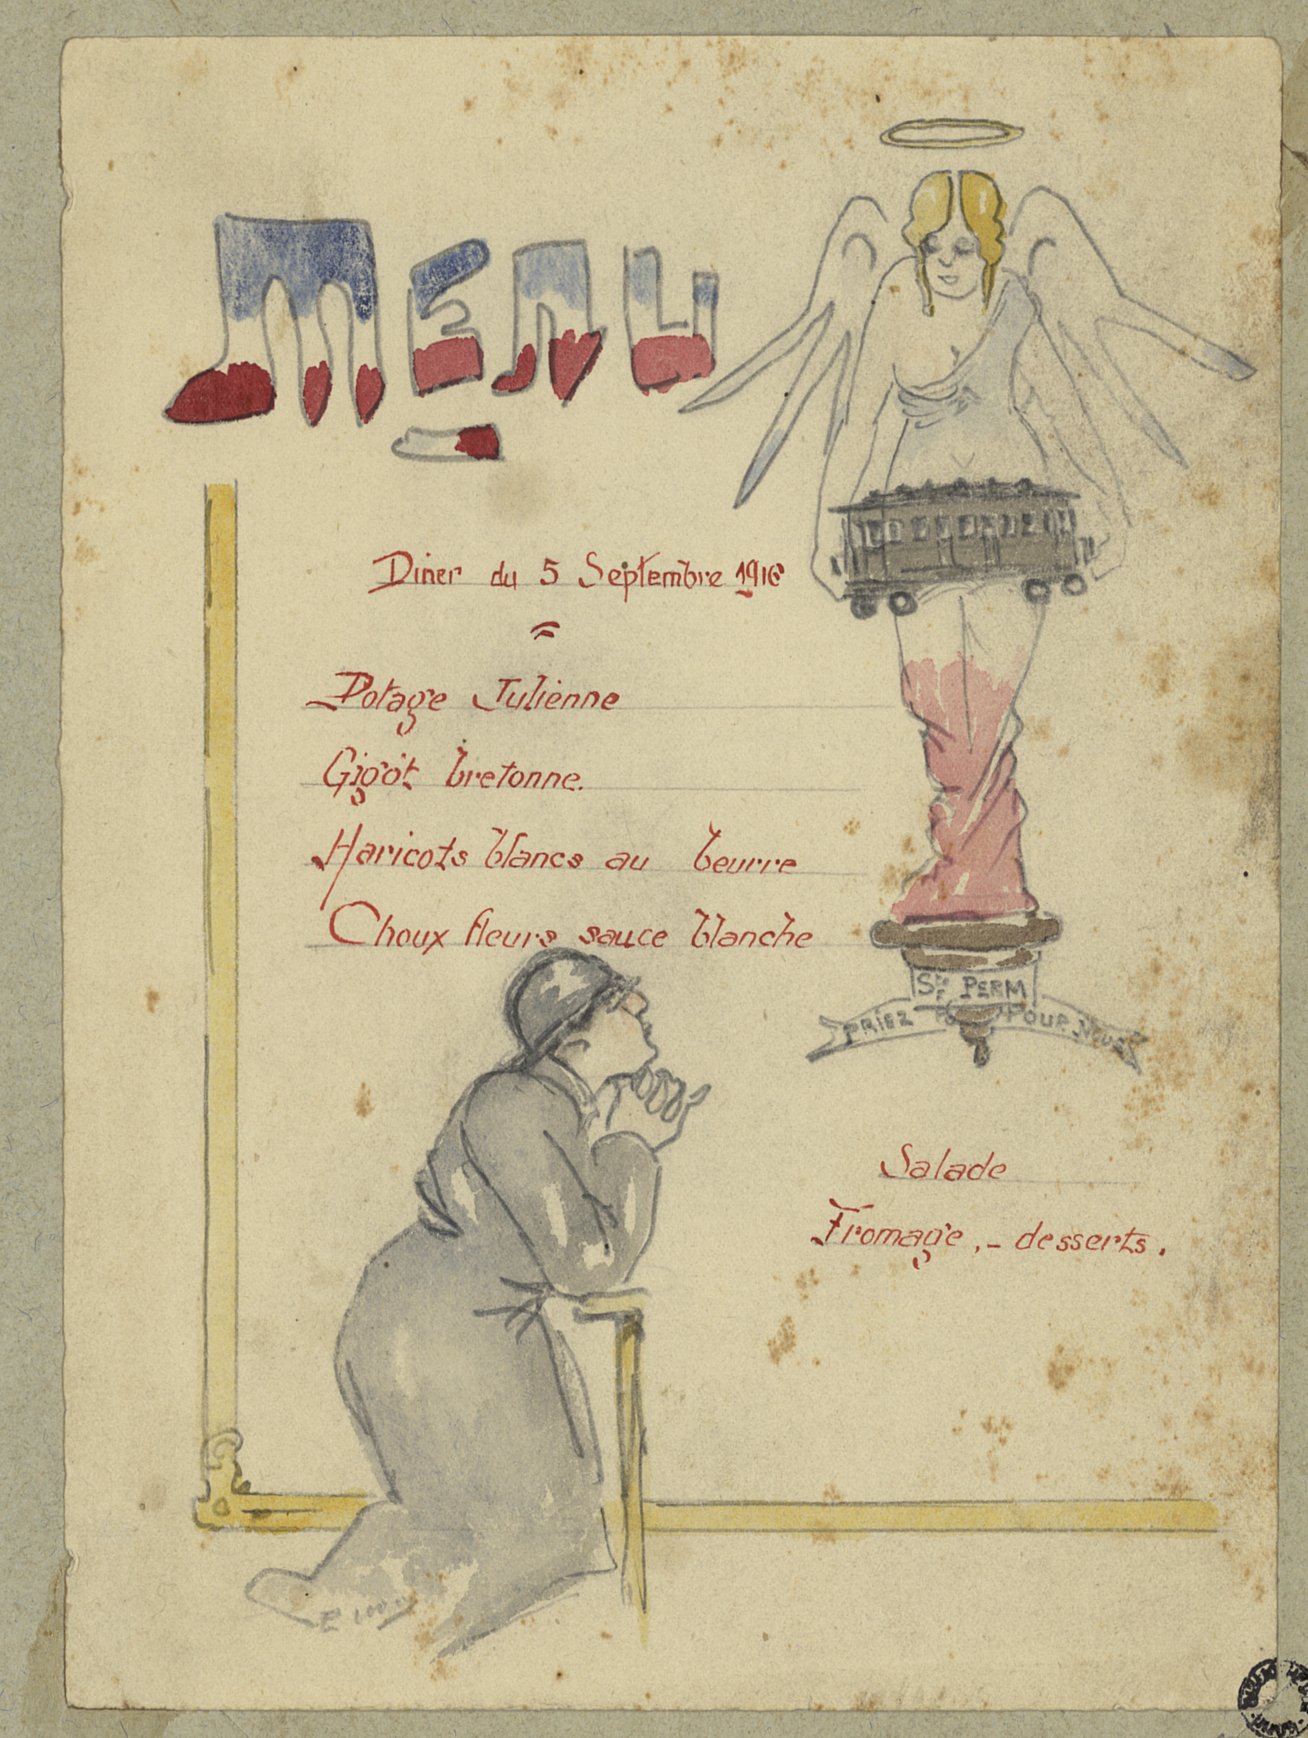 MENU
Diner du 5 Septembre 1916
Potage Julienne
Gigot bretonne.
Haricots blancs au beurre
Choux fleurs sauce blanche
Ste PERM
PRIEZ POUR NOUS
Salade
Fromage, - desserts.